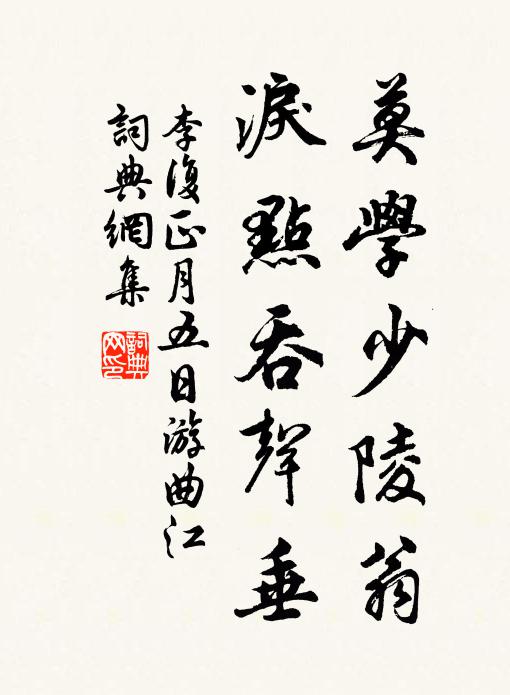 莫學少陵翁
淚點吞聲垂
李復正月五日游曲江
詞典網集
詞典
网印